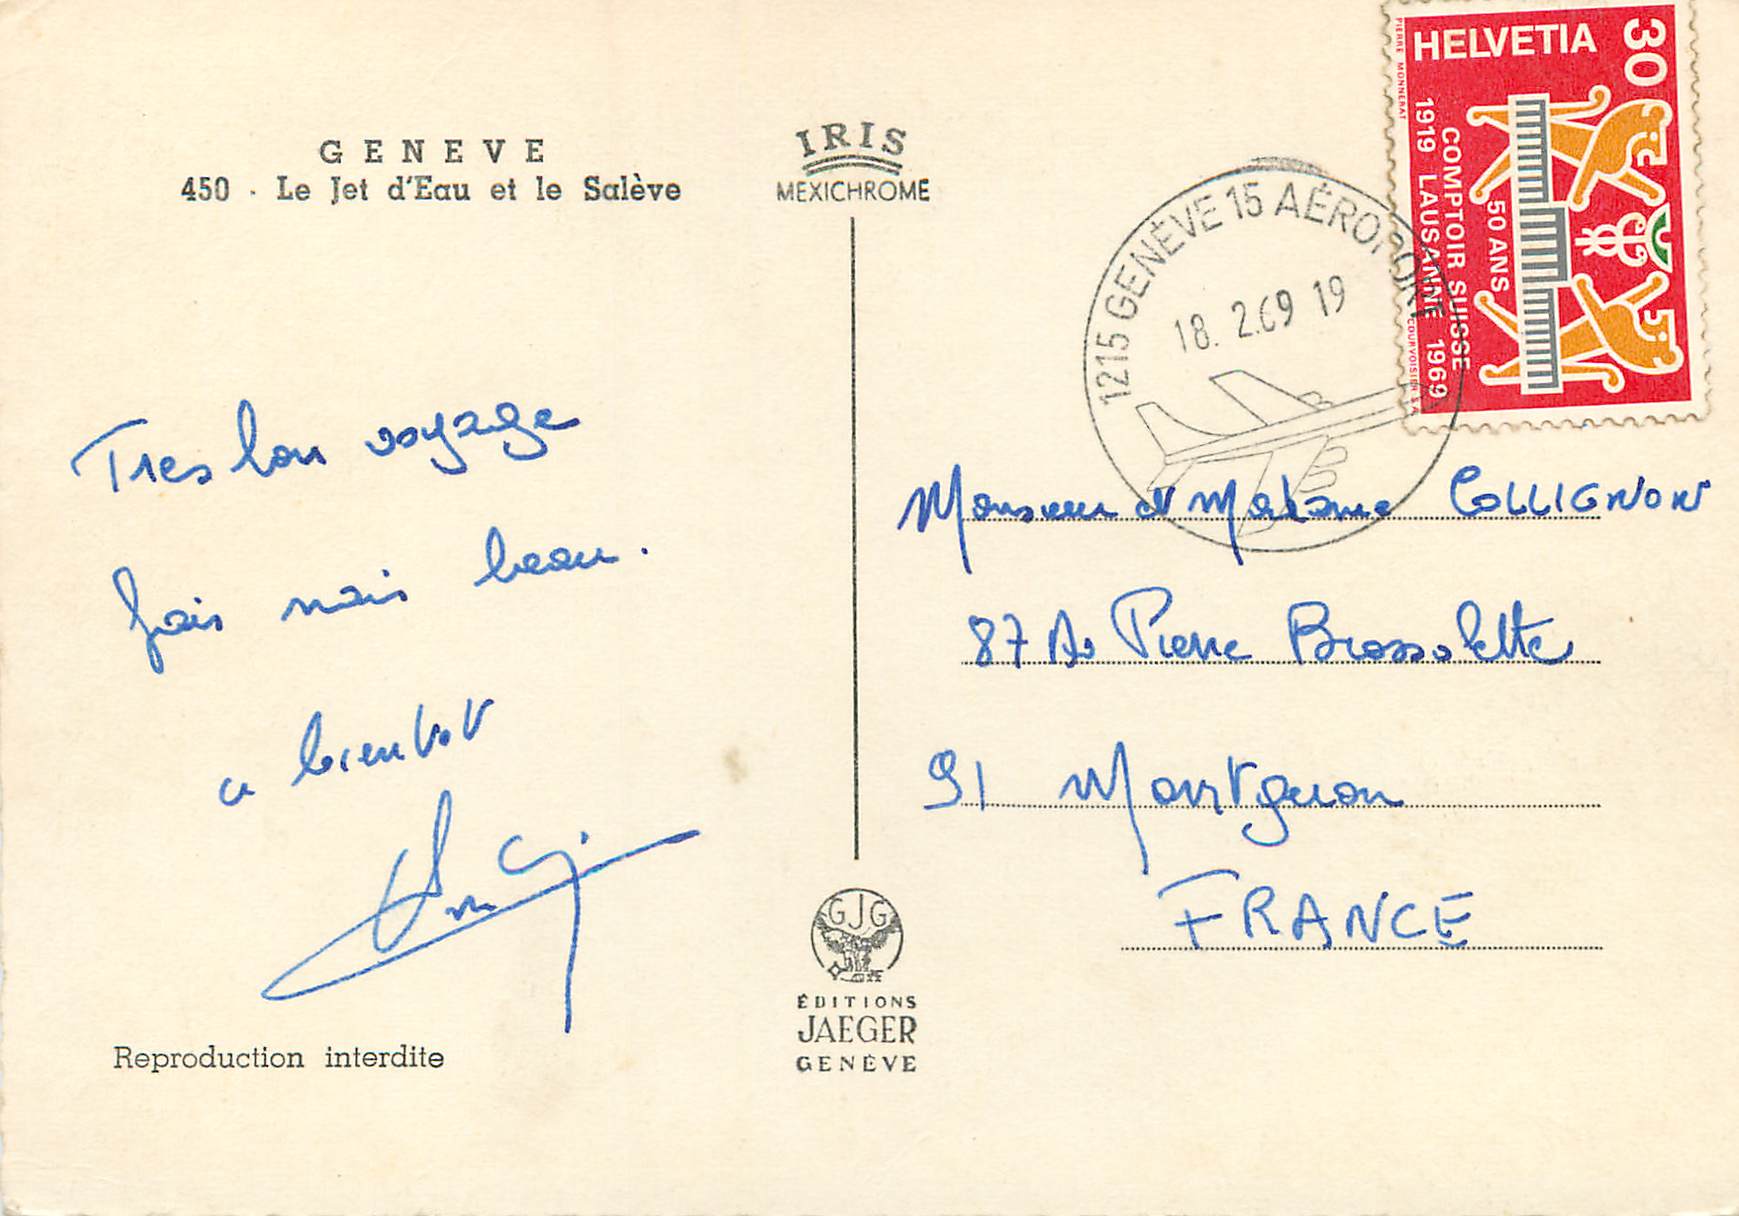 GENEVE
450 - Le Jet d'Eau et le Salève
IRIS
MEXICHROME
Tres bon voyage
frais mais beau.
a bientot
Reproduction interdite
GJG
ÉDITIONS
JAEGER
GENÈVE
1215 GENÈVE 15 AÉROPORT
18. 2.69 19
HELVETIA
30
50 ANS
COMPTOIR SUISSE
1919 LAUSANNE 1969
PIERRE MONNERAT
COURVOISIER S.A.
Monsieur et Madame COLLIGNON
87 Av Pierre Brossolette
91 Montgeron
FRANCE